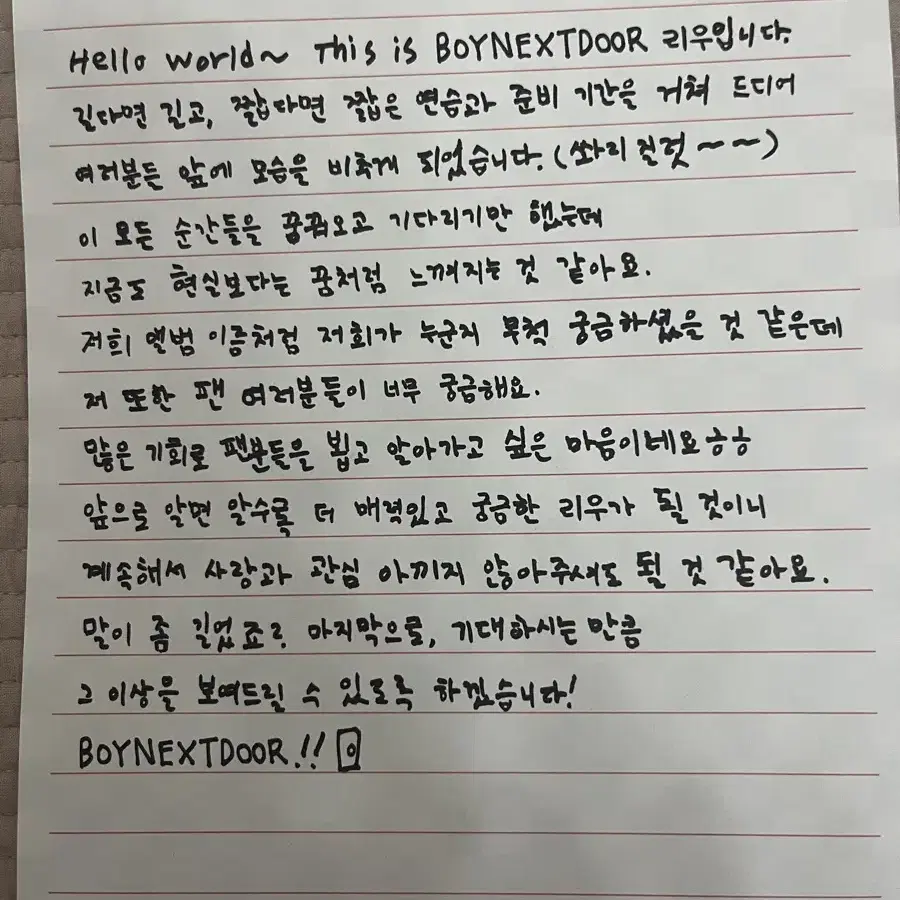 Hello world~ This is BOYNEXTDOOR 리우입니다.
길다면 길고, 짧다면 짧은 연습과 준비 기간을 거쳐 드디어
여러분들 앞에 모습을 비추게 되었습니다. (쏴리 질러~~~)
이 모든 순간들을 꿈꿔오고 기다리기만 했는데
지금도 현실보다는 꿈처럼 느껴지는 것 같아요.
저희 앨범 이름처럼 저희가 누군지 무척 궁금하셨을 것 같은데
저 또한 팬 여러분들이 너무 궁금해요.
많은 기회로 팬분들을 뵙고 알아가고 싶은 마음이네요ㅎㅎ
앞으로 알면 알수록 더 매력있고 궁금한 리우가 될 것이니
계속해서 사랑과 관심 아끼지 않아주셔도 될 것 같아요.
말이 좀 길었죠? 마지막으로, 기대하시는 만큼
그 이상을 보여드릴 수 있도록 하겠습니다!
BOYNEXTDOOR!!